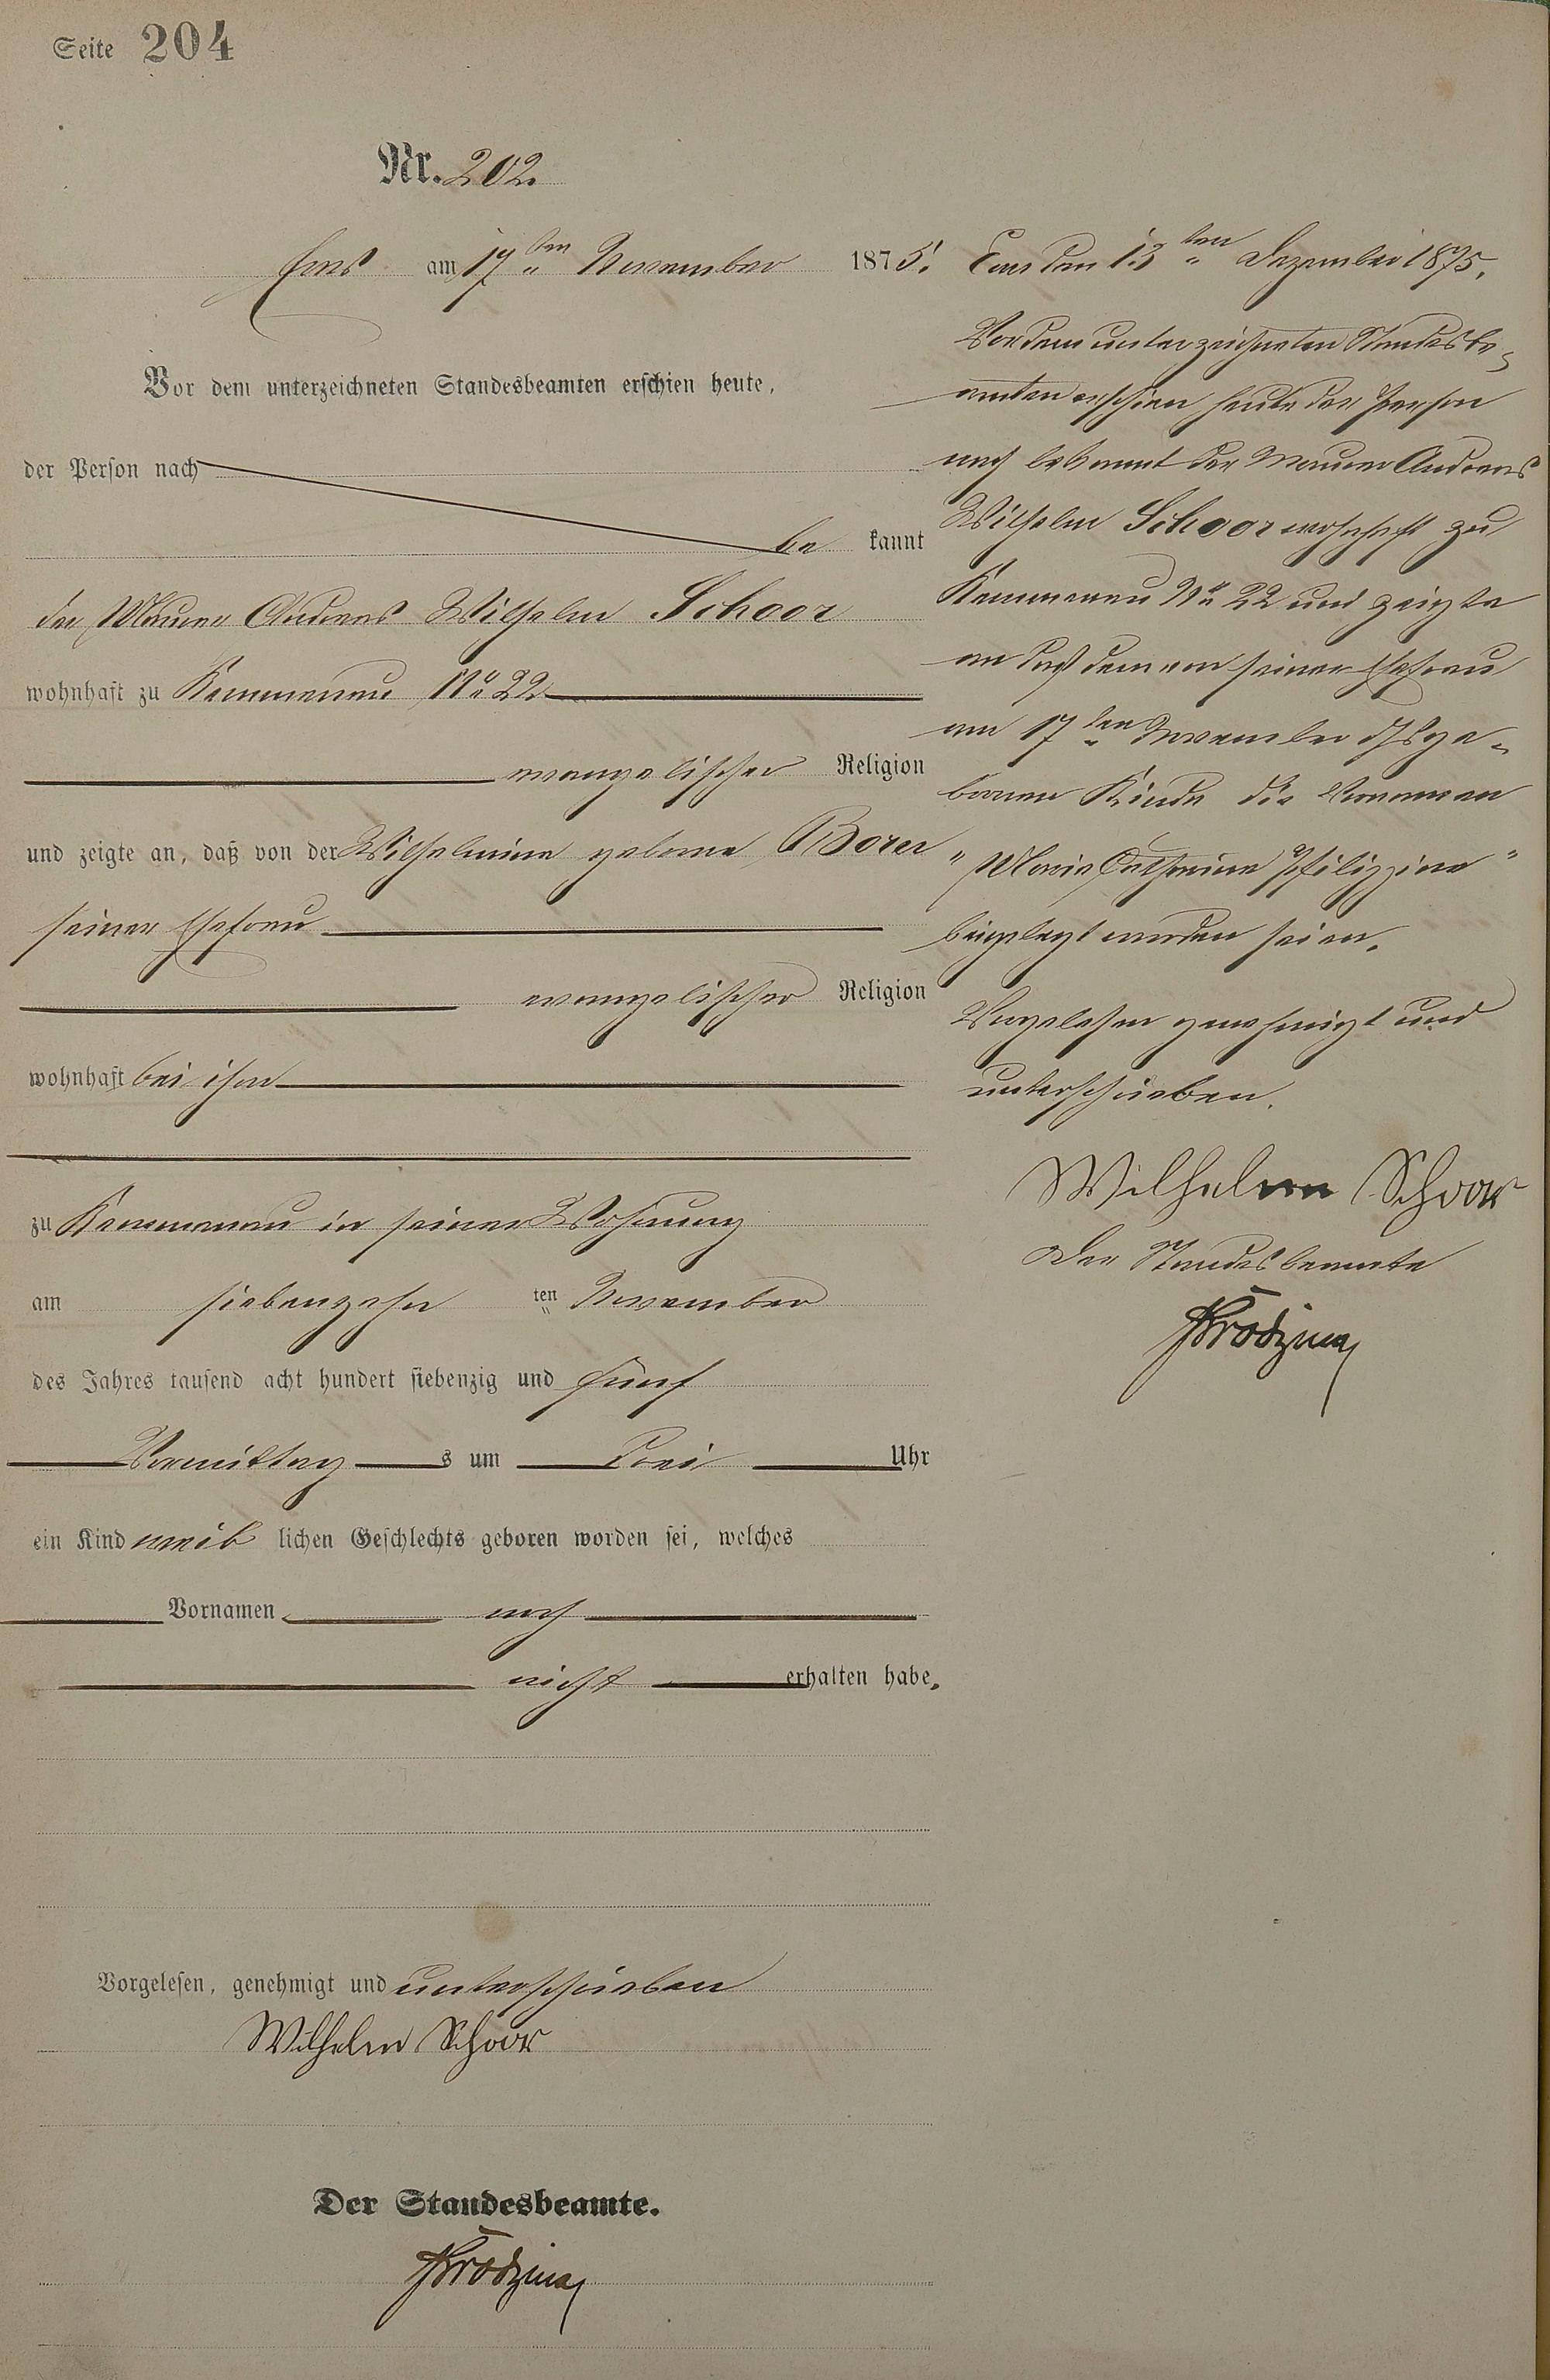 Seite 204
Nr. 202.
Ems am 17ten November 1875.
Vor dem unterzeichneten Standesbeamten erschien heute,
der Person nach
be kannt
der Maurer Andreas Wilhelm Schoor
wohnhaft zu Kemmenau No 22
evangelischer Religion
und zeigte an, daß von der Wilhelmine geborne Borer
seiner Ehefrau
evangelischer Religion
wohnhaft bei ihm
zu Kemmenau in seiner Wohnung
am siebenzehn ten November
des Jahres tausend acht hundert siebenzig und fünf
Vormittag s um drei Uhr
ein Kind weib lichen Geschlechts geboren worden sei, welches
Vornamen noch
nicht erhalten habe.
Vorgelesen, genehmigt und unterschrieben
Wilhelm Schoor
Der Standesbeamte.
Ems den 13ten Dezember 1875.
Vor dem unterzeichneten Standesbe-
amten erschien heute der Person
nach bekannt der Maurer Andreas
Wilhelm Schoor wohnhaft zu
Kemmenau No 22 und zeigte
an daß dem von seiner Ehefrau
am 17ten November ge-
bornen Kinde die Vornamen
"Marie Catharina Philippine"
beigelegt worden seien.
Vorgelesen genehmigt und
unterschrieben.
Wilhelm Schoor
Der Standesbeamte